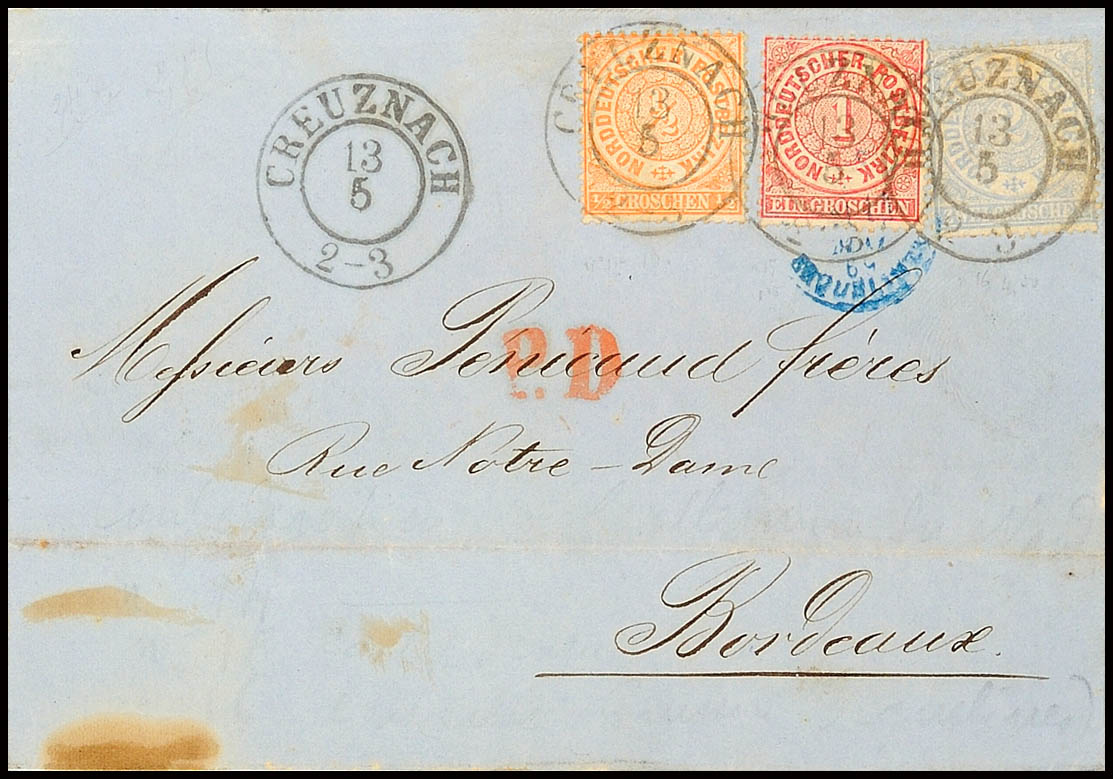 CREUZNACH
13
5
2-3
CREUZNACH
13
5
NORDDEUTSCHER POSTBEZIRK
½ GROSCHEN ½
NORDDEUTSCHER POSTBEZIRK
1
EIN GROSCHEN
CREUZNACH
13
5
3
P.D
Messieurs Penicaud frères
Rue Notre-Dame
Bordeaux.